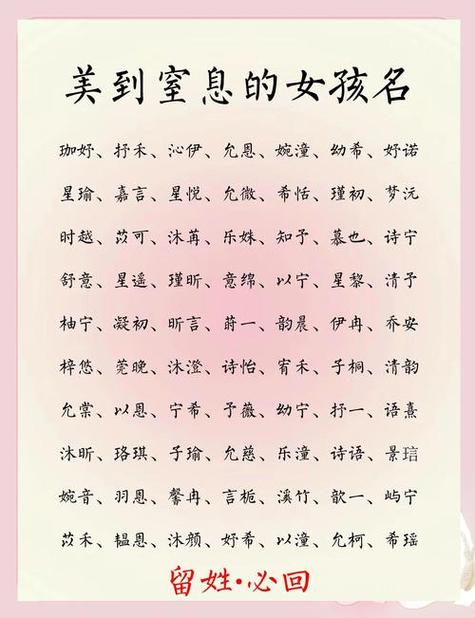 美到窒息的女孩名
珈妤、抒禾、沁伊、允恩、婉潼、幼希、妤诺
星瑜、嘉言、星悦、允微、希恬、瑾初、梦沅
时越、苡可、沐苒、乐姝、知予、慕也、诗宁
舒意、星遥、瑾昕、意绵、以宁、星黎、清予
柚宁、凝初、昕言、莳一、韵晨、伊冉、乔安
梓悠、莞晚、沐澄、诗怡、宥禾、子桐、清韵
允棠、以恩、宁希、予薇、幼宁、抒一、语熹
沐昕、珞琪、子瑜、允慈、乐潼、诗语、景琂
婉音、羽恩、馨冉、言栀、溪竹、歆一、屿宁
苡禾、韫恩、沐颜、妤希、以潼、允柯、希瑶
留姓·必回